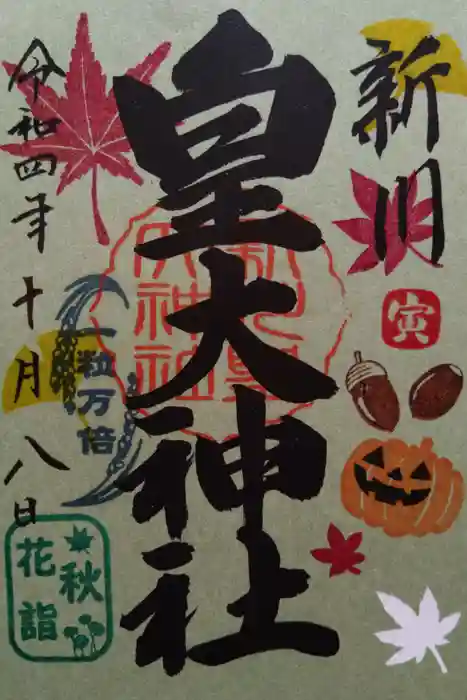 新川
寅
皇大神社
新川皇大神社
一粒万倍
令和四年十月八日
秋
花詣